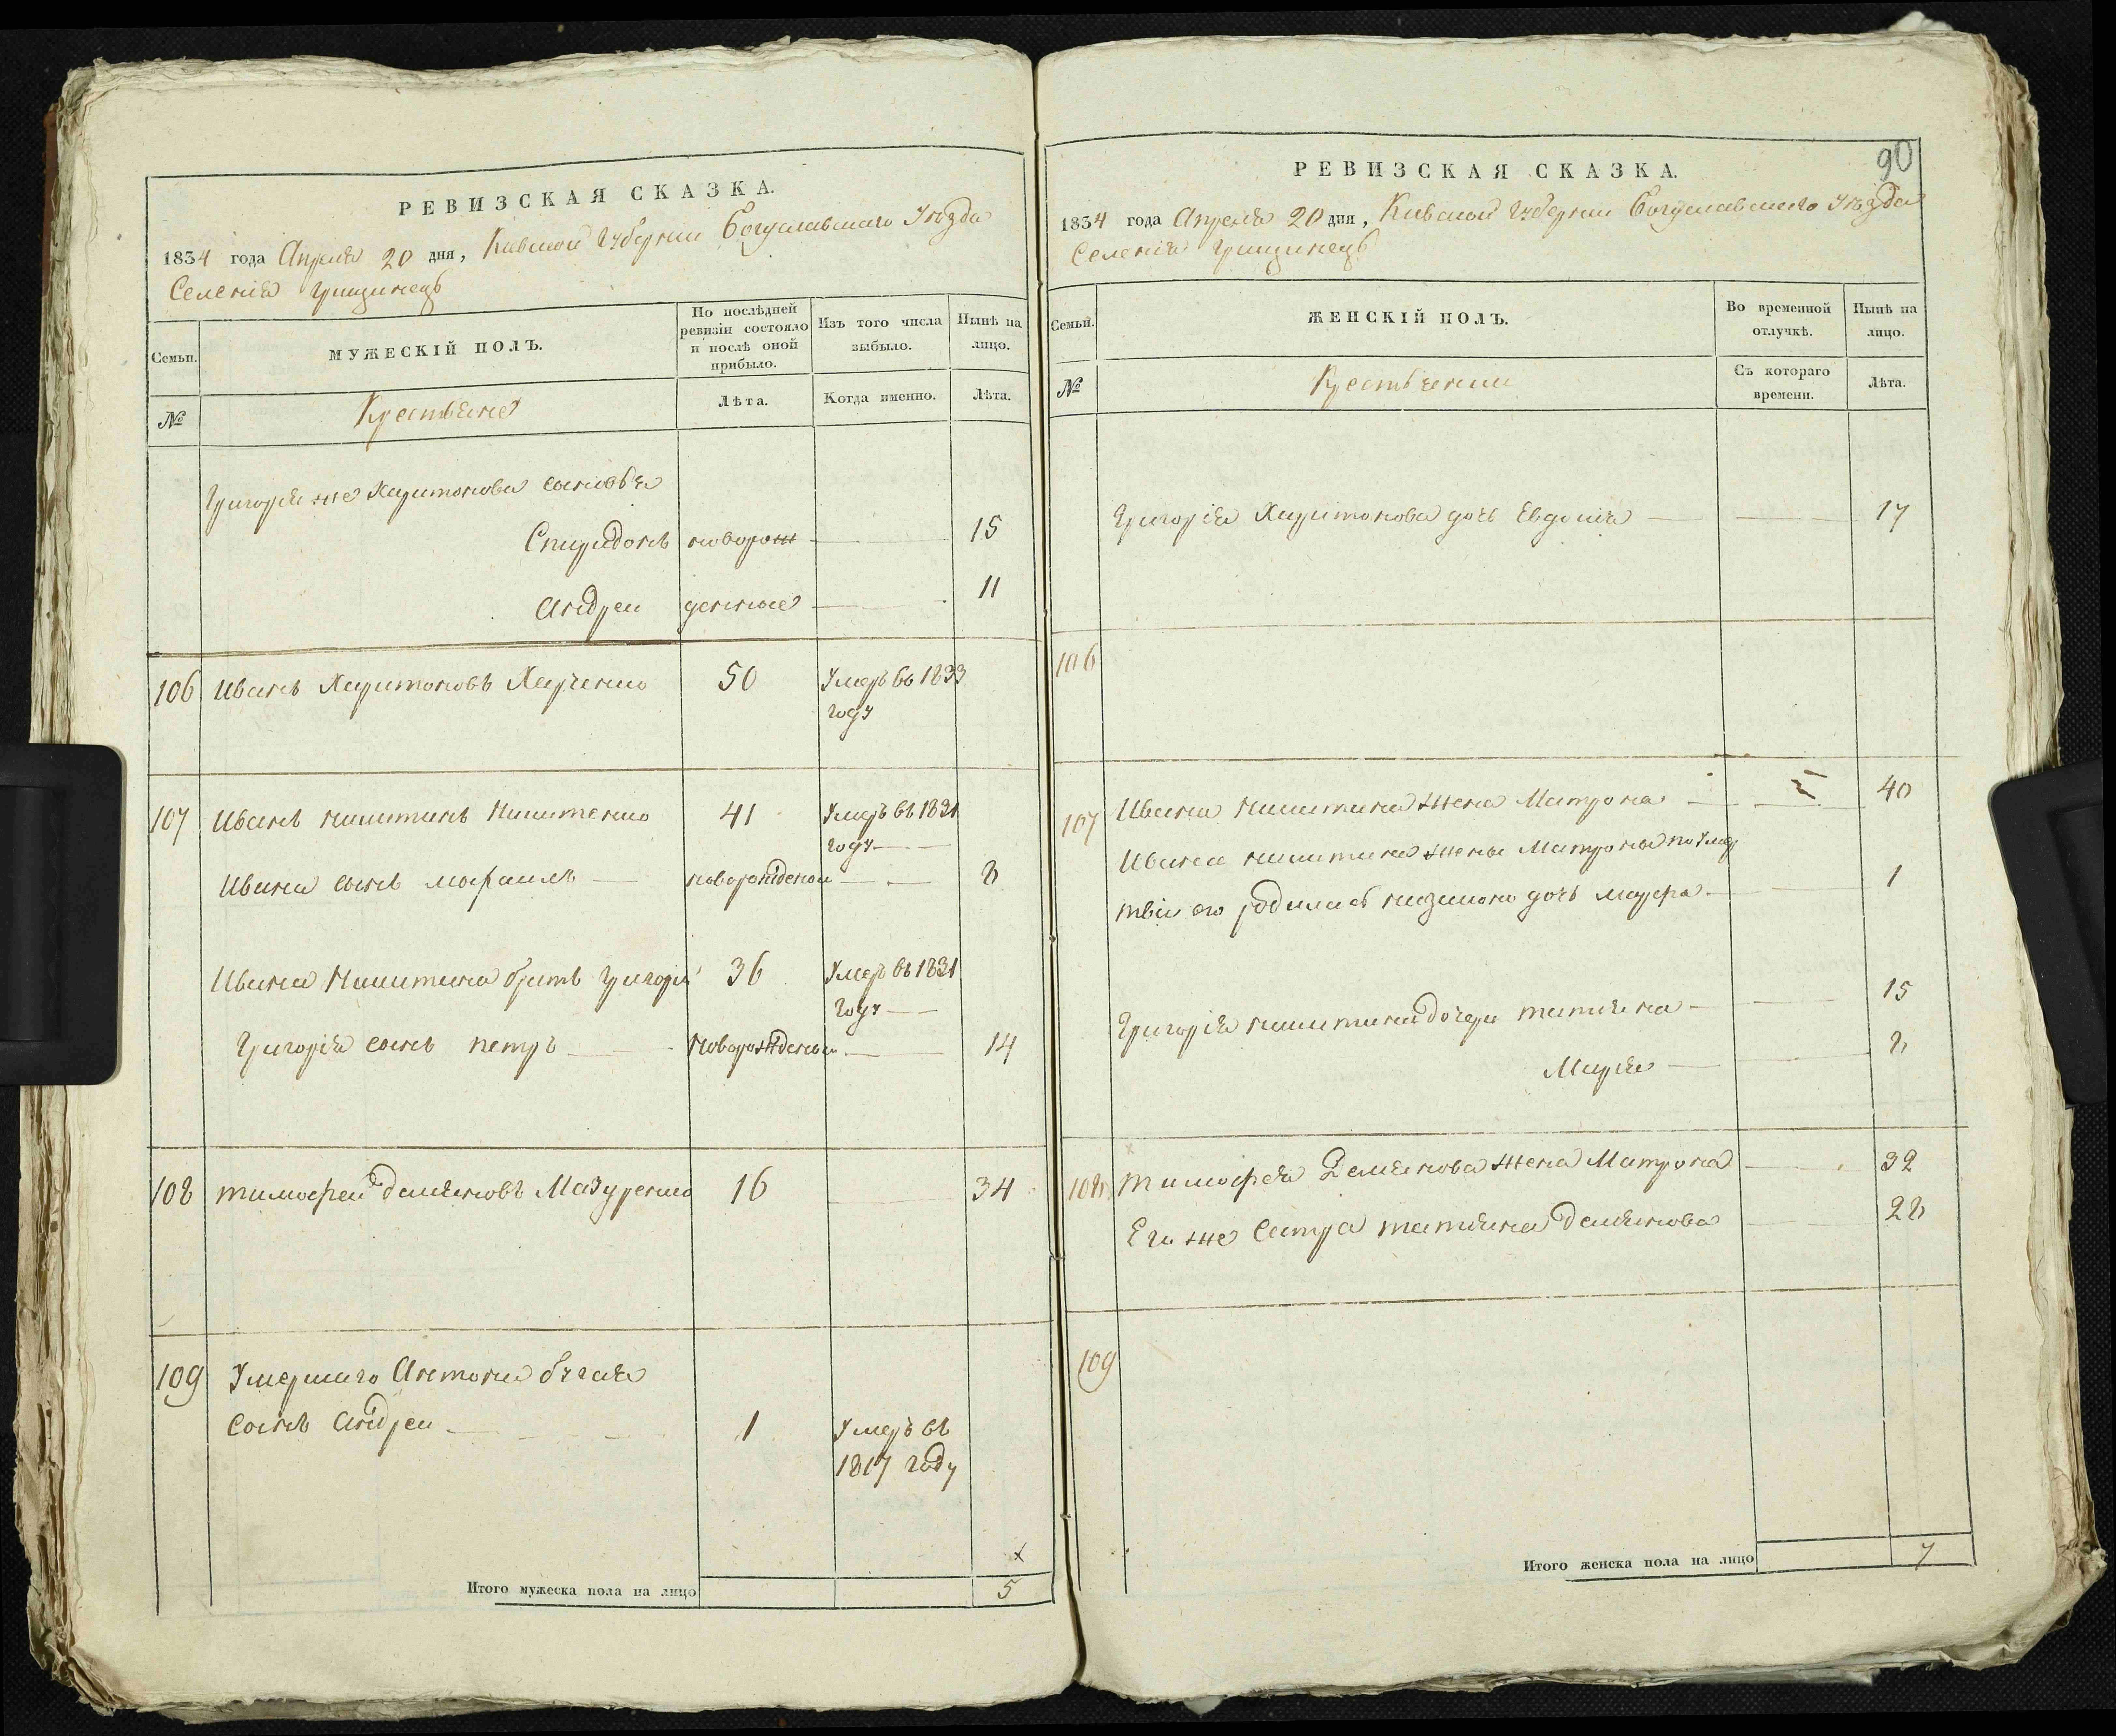 РЕВИЗСКАЯ СКАЗКА.
1834 года Апреля 20 дня, Киевской Губернии Богуславскаго Уѣзда
Селенія Грищинецъ
Семьи.
МУЖЕСКІЙ ПОЛЪ.
По послѣдней
ревизіи состояло
и послѣ оной
прибыло.
Изъ того числа
выбыло.
Нынѣ на
лицо.
№
Крестьяне
Лѣта.
Когда именно.
Лѣта.
Григорія же Харитонова сыновья
Спиридонъ новорож 15
Андреи денные 11
106 Иванъ Харитоновъ Харченко 50 Умеръ въ 1833
году
107 Иванъ Никитинъ Никитенко 41 Умеръ въ 1831
году
Ивана сынъ Мофаилъ новорожденои 8
Ивана Никитина братъ Григорій 36 Умеръ въ 1831
году
Григорія сынъ Петръ новорожденои 14
108 Тимофеи Демяновъ Мазуренко 16 34
109 Умершаго Антона Бугая
Сынъ Андреи 1 Умеръ въ
1817 году
Итого мужеска пола на лицо 5
90
РЕВИЗСКАЯ СКАЗКА.
1834 года Апреля 20 дня, Киевской Губернии Богуславскаго Уѣзда
Селенія Грищинецъ
Семьи.
ЖЕНСКІЙ ПОЛЪ.
Во временной
отлучкѣ.
Нынѣ на
лицо.
№
Крестьянки
Съ котораго
времени.
Лѣта.
Григорія Харитонова дочь Евдокія 17
106
107 Ивана Никитина жена Матрона 40
Ивана Никитина жены Матроны по
его родилась дочь Марфа 1
Григорія Никитина дочери Татияна 15
Марья 8
108 Тимофея Демянова жена Матрона 32
Его же Сестра Татияна Демянова 28
109
Итого женска пола на лицо 7